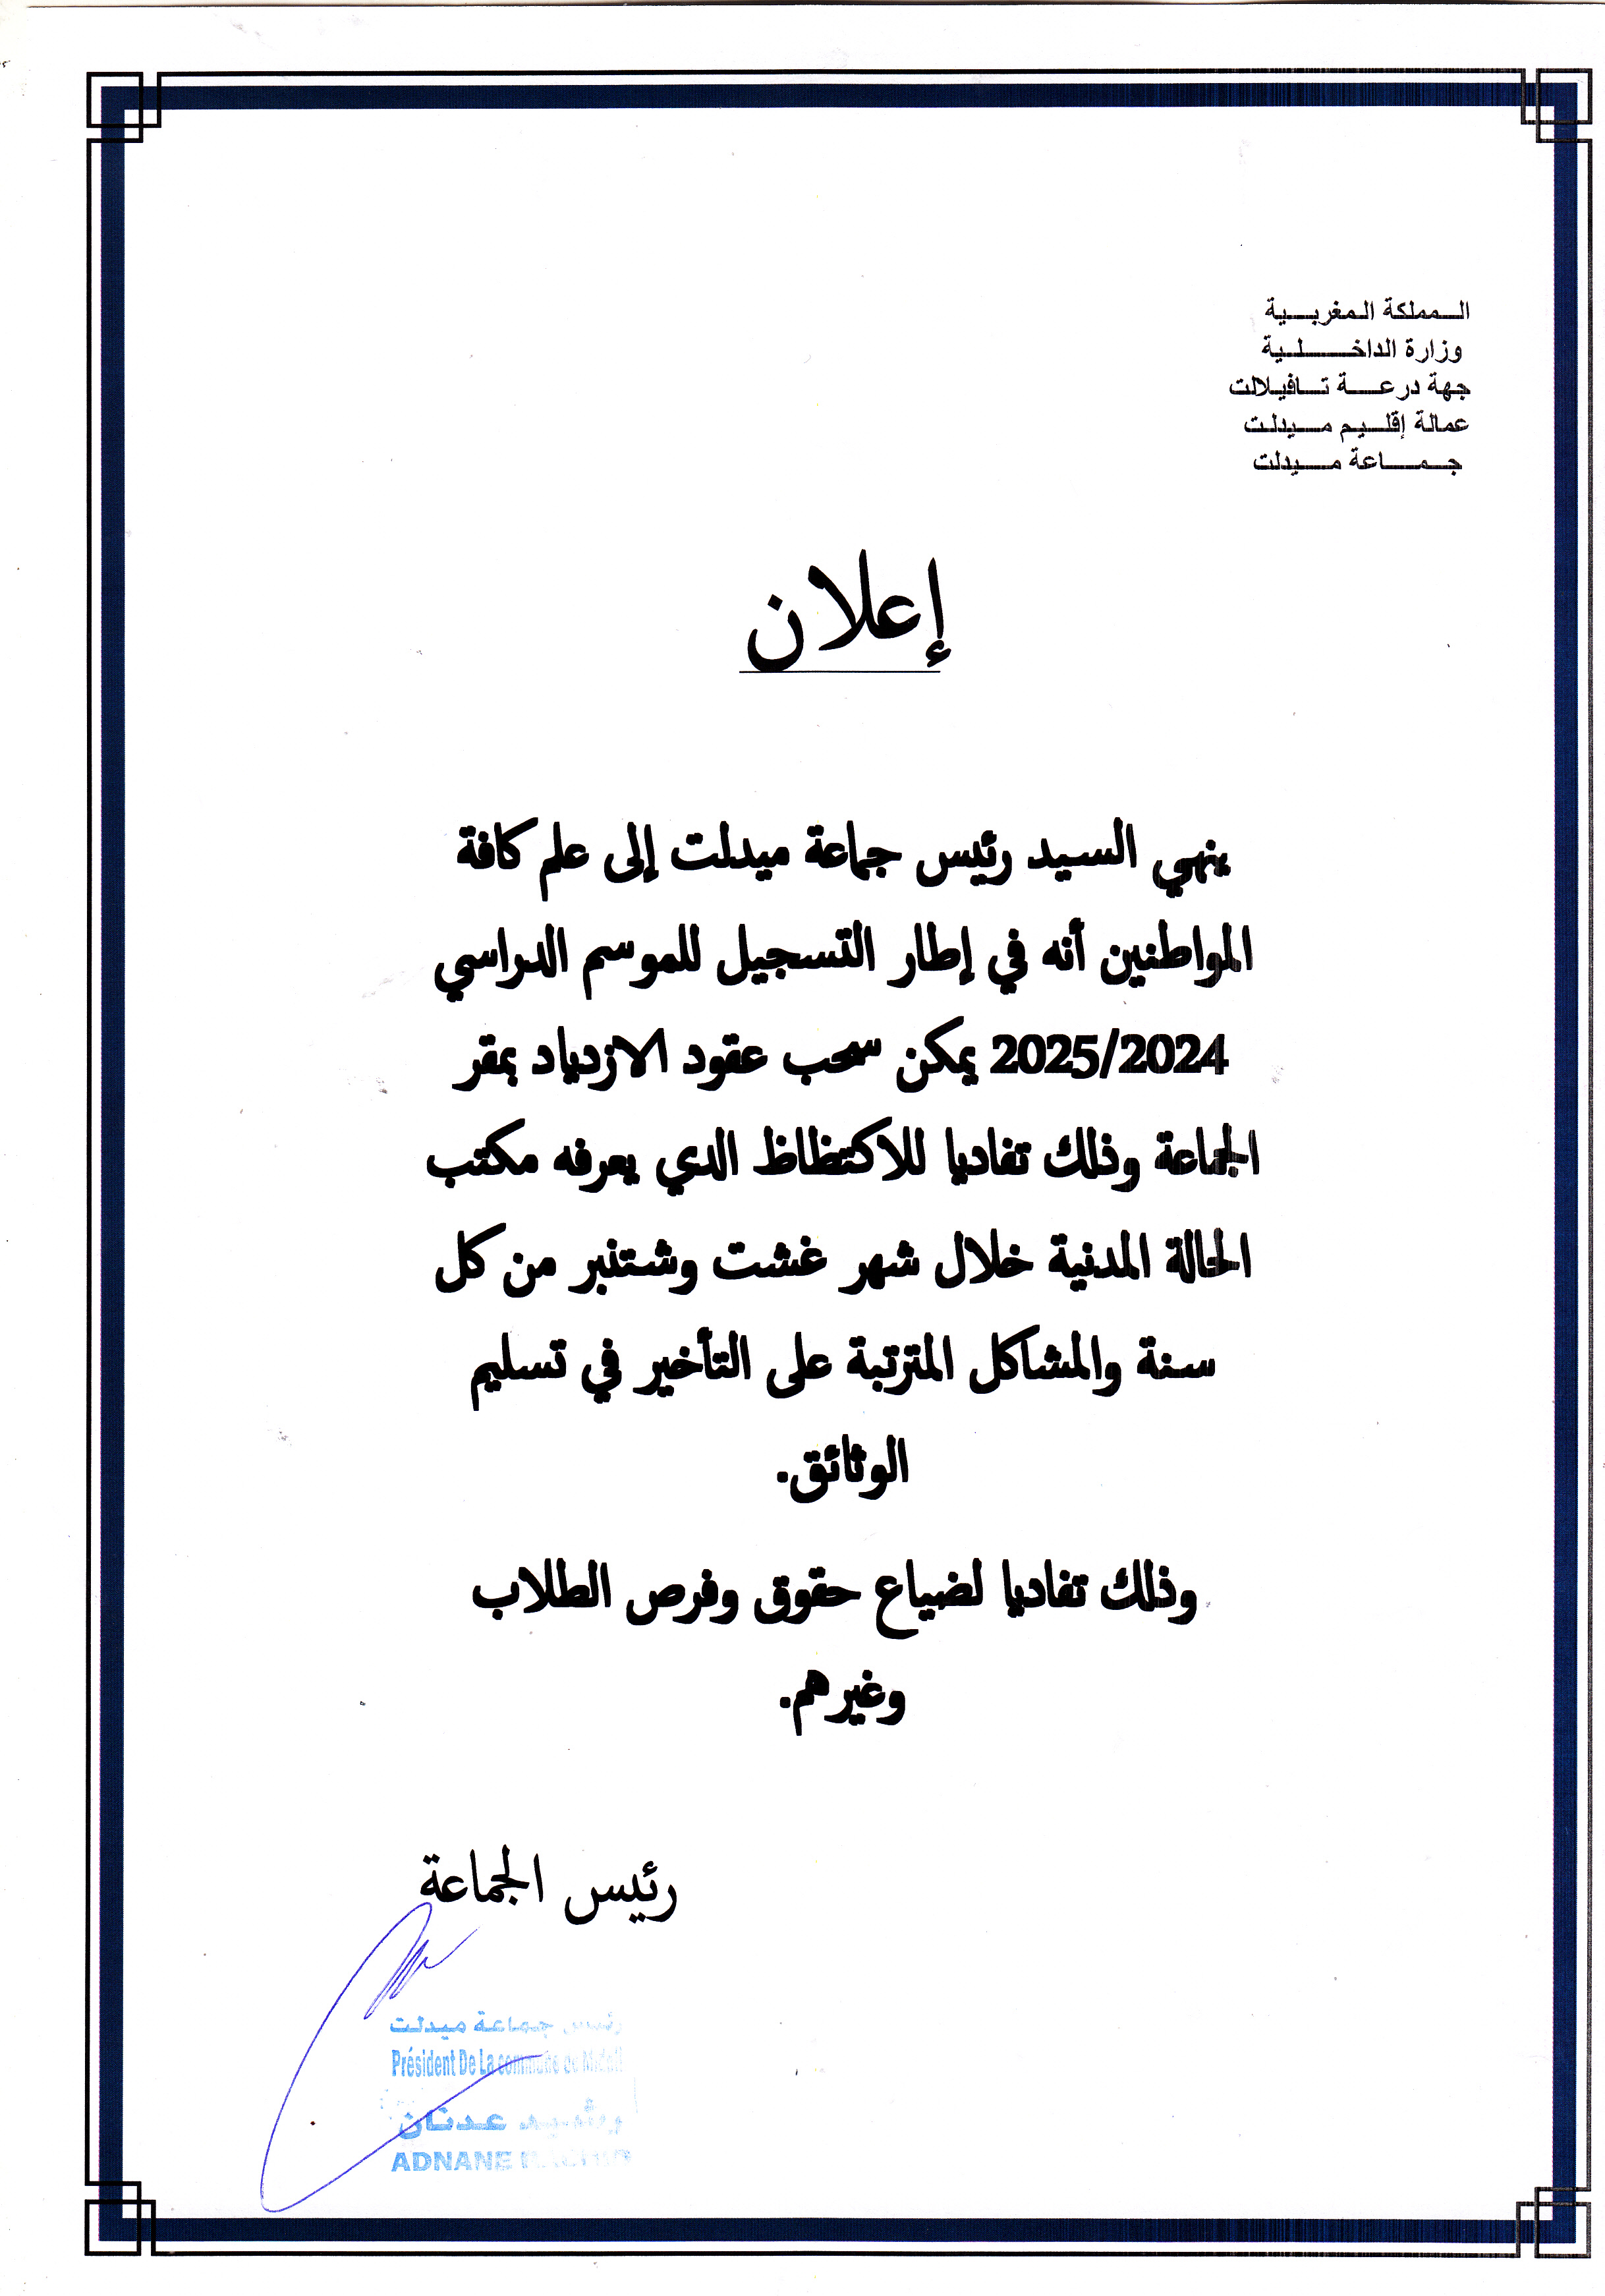 المملكة المغربية
وزارة الداخلية
جهة درعة تافيلالت
عمالة إقليم ميدلت
جماعة ميدلت
إعلان
ينهي السيد رئيس جماعة ميدلت إلى علم كافة
المواطنين أنه في إطار التسجيل للموسم الدراسي
2025/2024 يمكن سحب عقود الازدياد بمقر
الجماعة وذلك تفاديا للاكتظاظ الدي يعرفه مكتب
الحالة المدنية خلال شهر غشت وشتنبر من كل
سنة والمشاكل المترتبة على التأخير في تسليم
الوثائق.
وذلك تفاديا لضياع حقوق وفرص الطلاب
وغيرهم.
رئيس الجماعة
رئيس جماعة ميدلت
Président De La commune de Midelt
رشيد عدنان
ADNANE RACHID